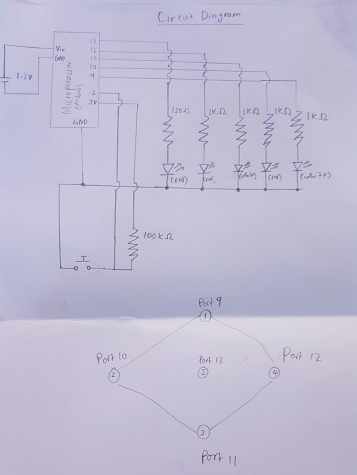 Circuit Diagram
Vin
GND
Microprocessor
(Arduino)
12
13
10
9
2
5V
GND
1kΩ
1kΩ
1kΩ
1kΩ
(red)
(red)
(white)
(red)
(white)
100kΩ
Port 9
1
Port 10
2
Port 13
5
Port 12
4
3
Port 11